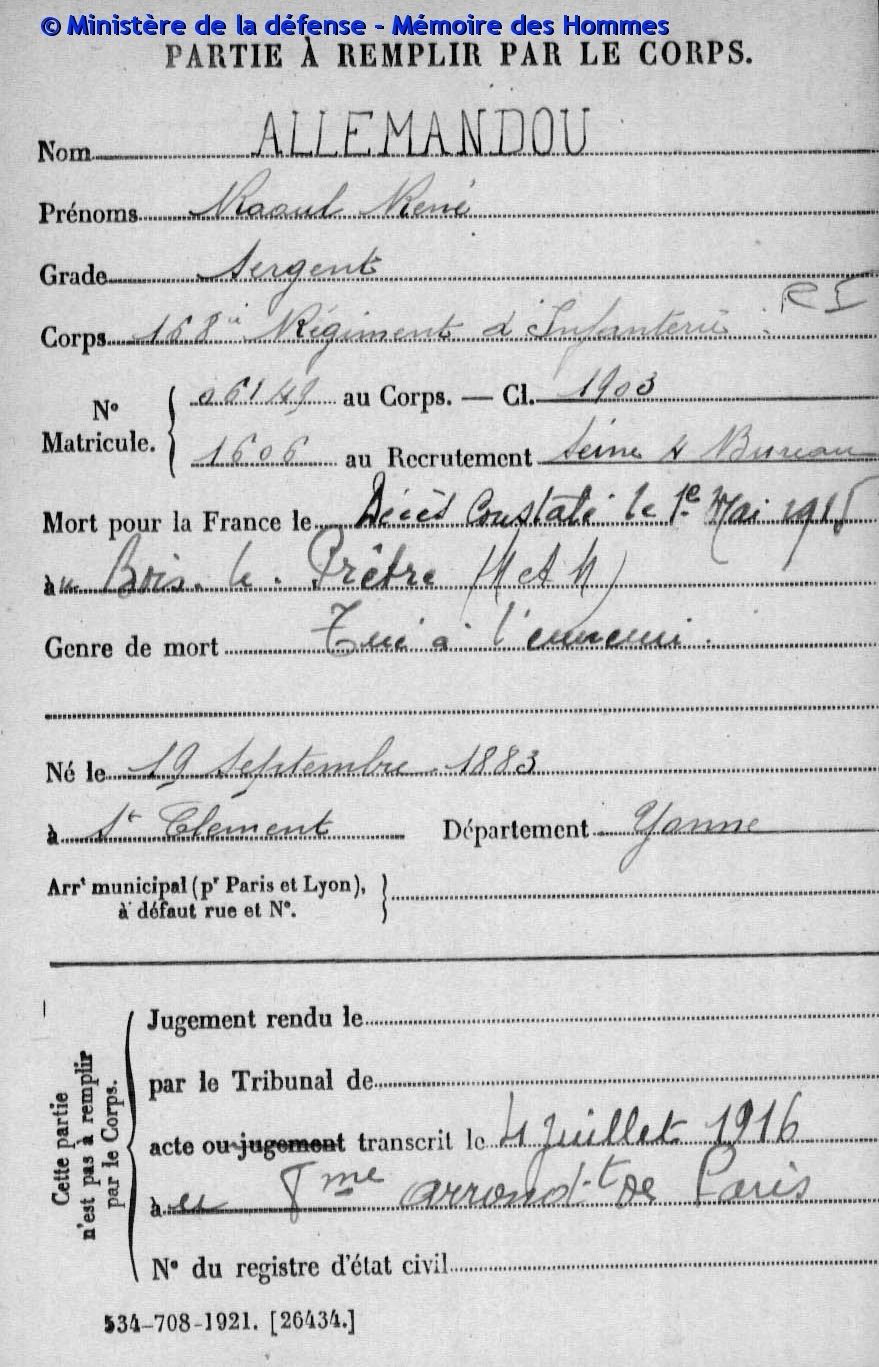 © Ministère de la défense - Mémoire des Hommes
PARTIE À REMPLIR PAR LE CORPS.
Nom ALLEMANDOU
Prénoms Raoul René
Grade Sergent
R I
Corps 168è Régiment d'Infanterie.
N° Matricule. 06149 au Corps. — Cl. 1903
1606 au Recrutement Seine 4 Bureau
Mort pour la France le Décès Constaté le 1er Mai 1915
au Bois-le-Prêtre (M et M)
Genre de mort Tué à l'ennemi.
Né le 19 Septembre 1883
à St Clément Département Yonne
Arrt municipal (pr Paris et Lyon),
à défaut rue et N°.
Cette partie n'est pas à remplir par le Corps.
Jugement rendu le
par le Tribunal de
acte ou jugement transcrit le 4 Juillet 1916
à au 8me arrond.t de Paris
N° du registre d'état civil
534-708-1921. [26434.]